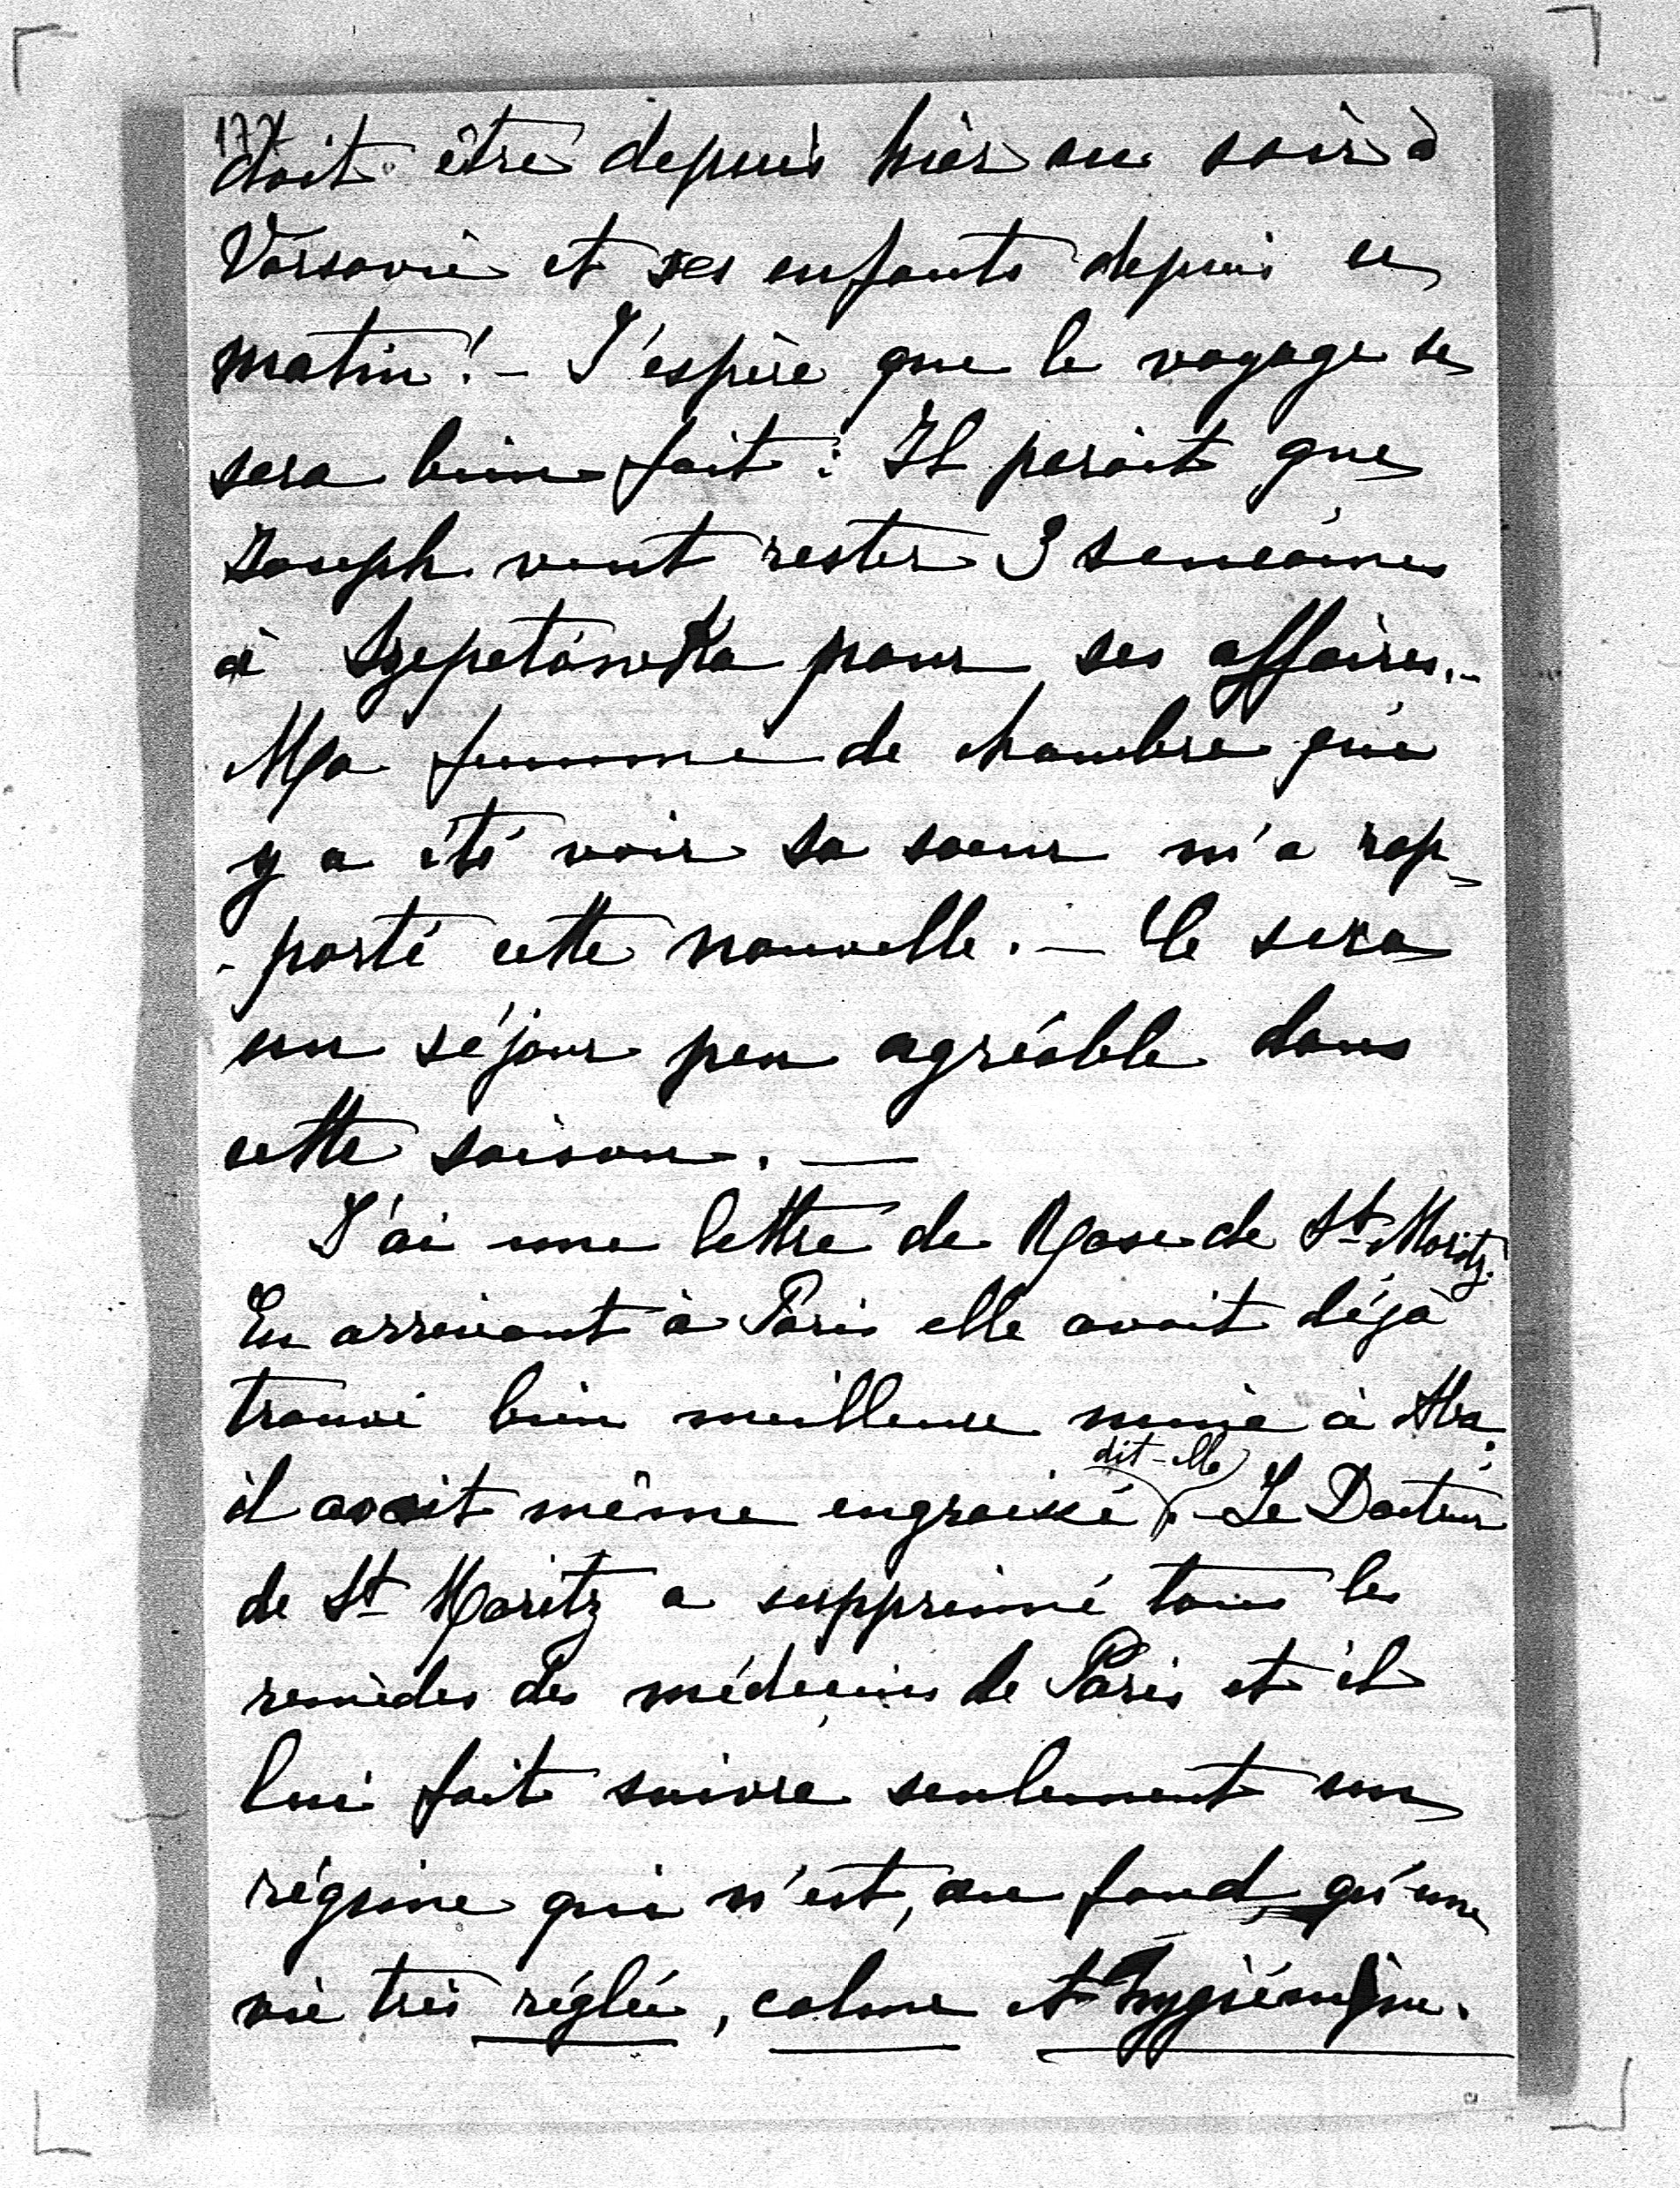 doit être depuis hier au soir à
Varsovie et ses enfants depuis ce
matin! – J'espère que le voyage se
sera bien fait: Il parait que
Joseph veut rester 3 semaines
à Szepetówka pour ses affaires. –
Ma femme de chambre qui
y a été voir sa sœur m'a rap-
-porté cette nouvelle. – Ce sera
un séjour peu agréable dans
cette saison. —
J'ai une lettre de Rose de St Moritz.
En arrivant à Paris elle avait déjà
trouvé bien meilleure mine à
dit-elle
il avait même engraissé. – Le Docteur
de St Moritz a supprimé tous les
remèdes des médecins de Paris et il
lui fait suivre seulement un
régime qui n'est, au fond, qu'une
vie très réglée, calme et hygiénique.